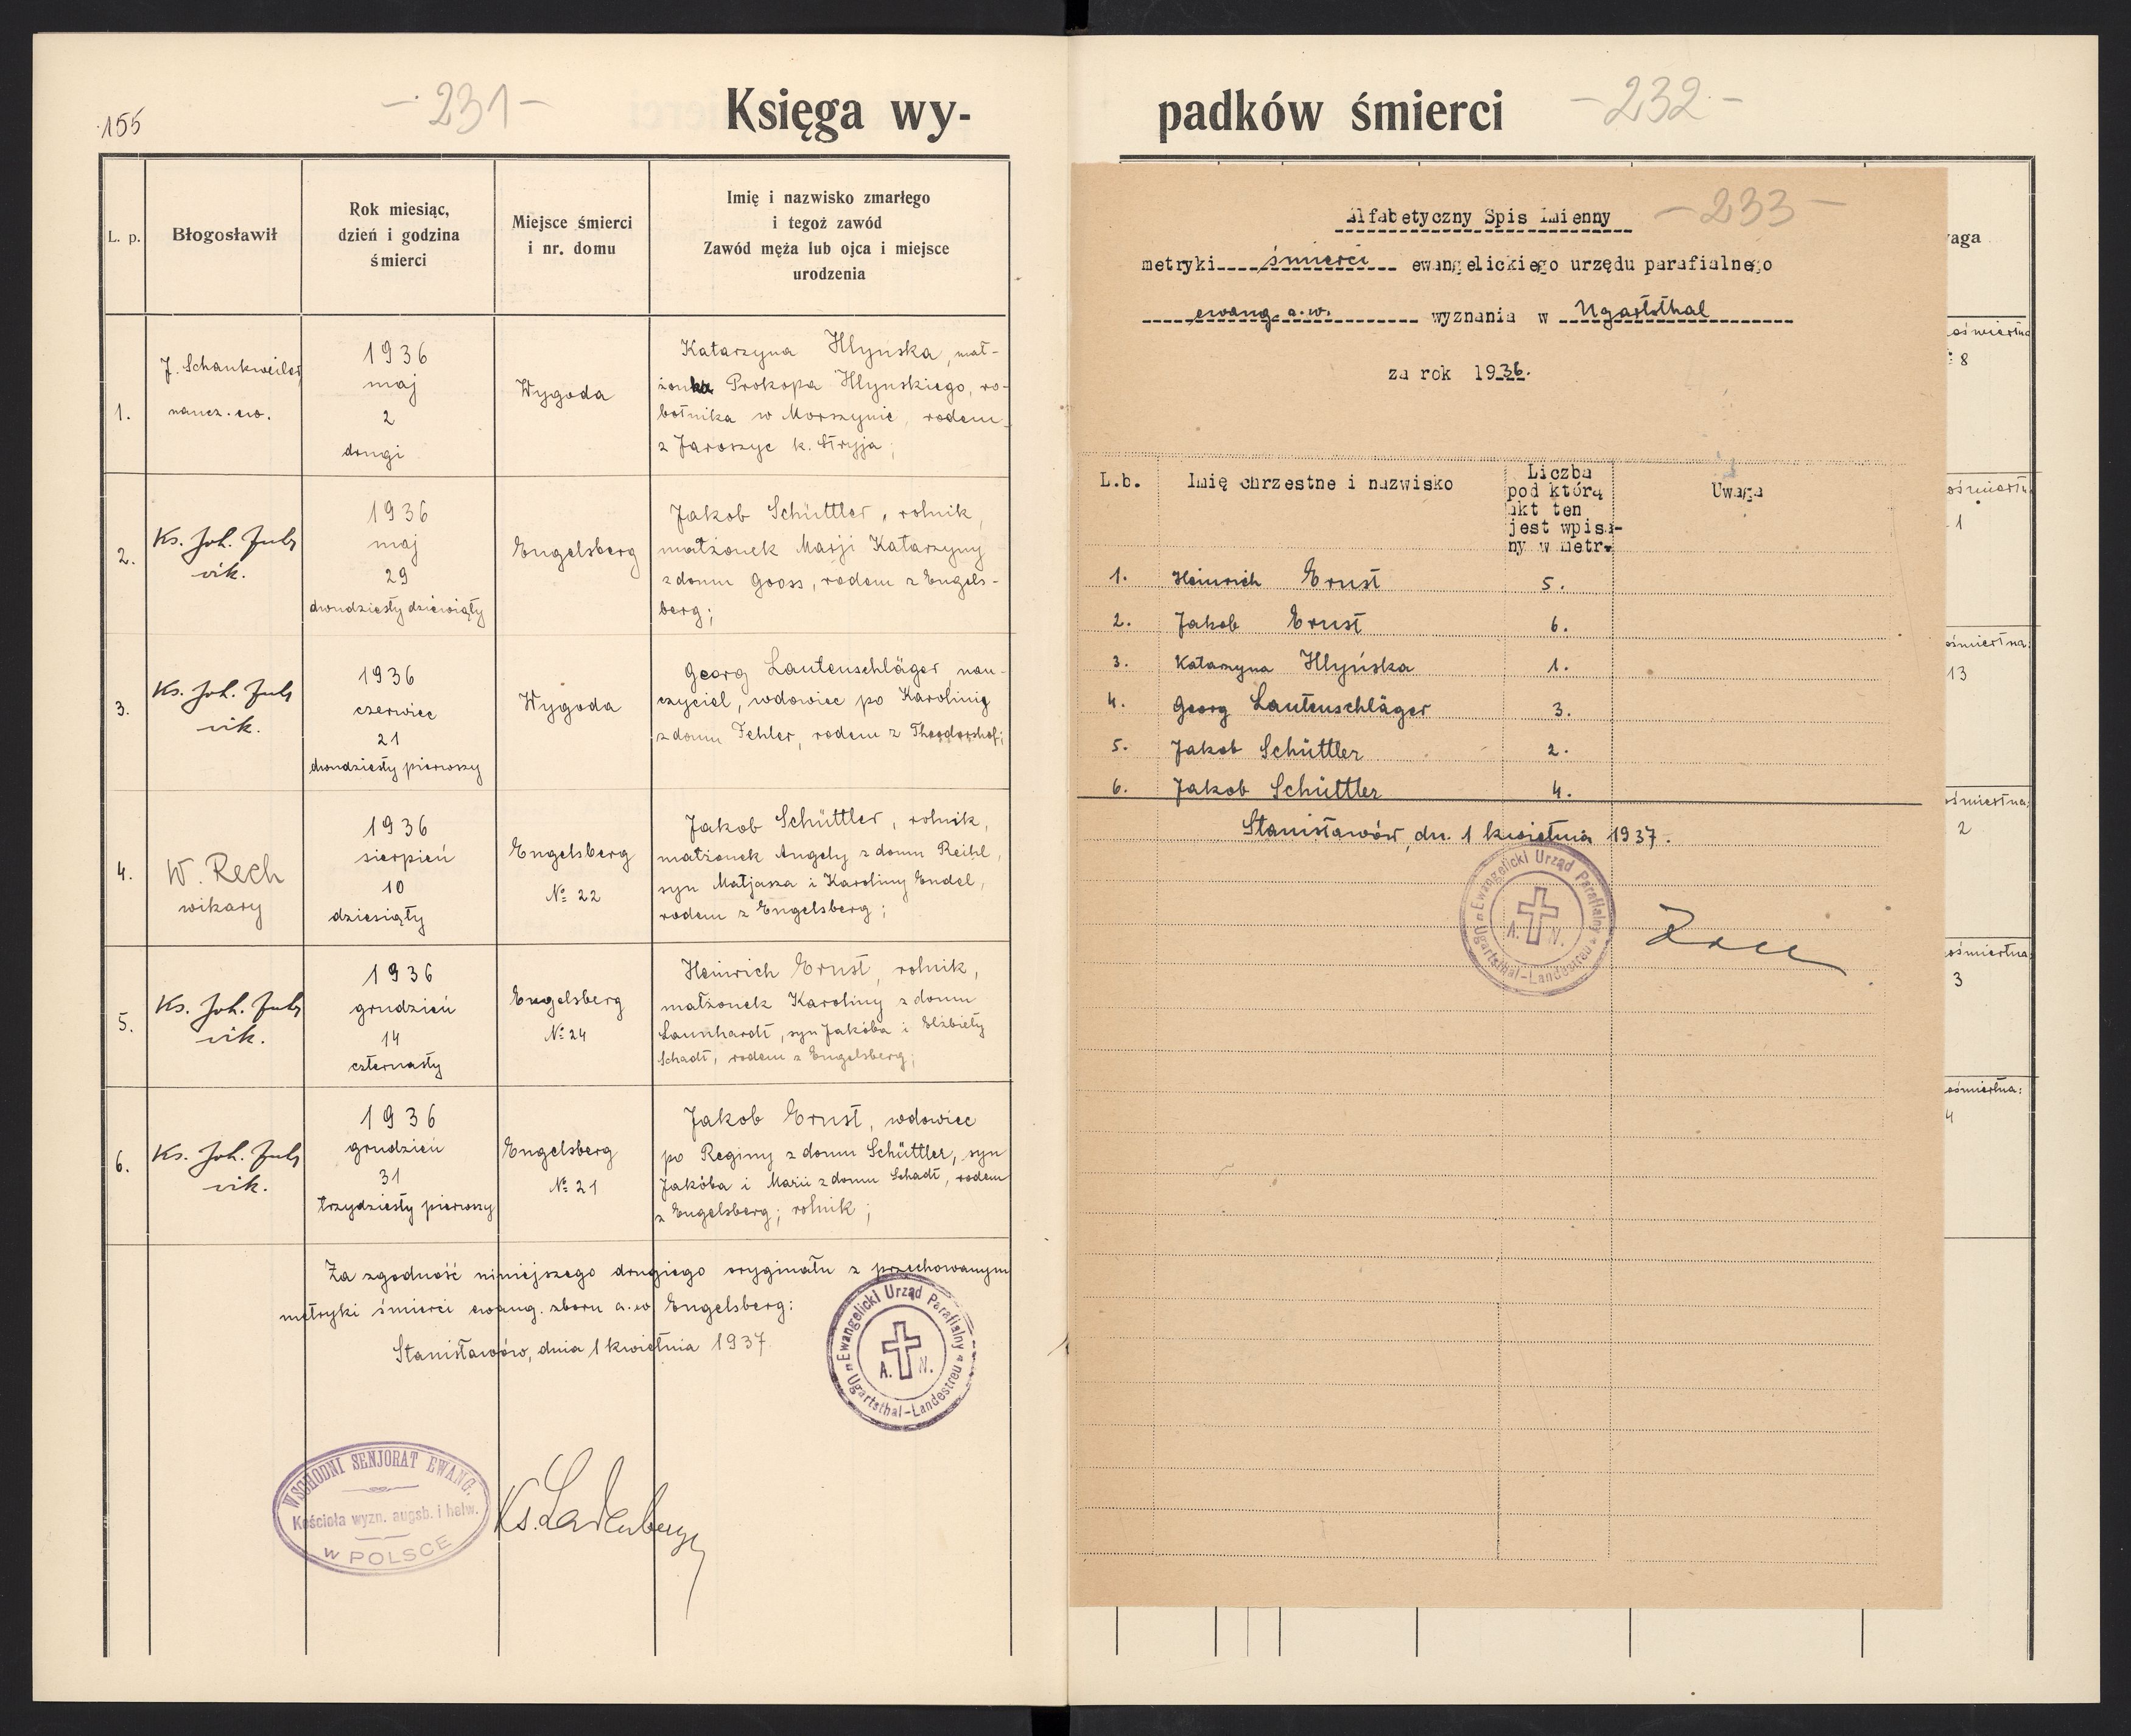 155
- 231 -
Księga wy-
L. p.
Błogosławił
Rok miesiąc,
dzień i godzina
śmierci
Miejsce śmierci
i nr. domu
Imię i nazwisko zmarłego
i tegoż zawód
Zawód męża lub ojca i miejsce
urodzenia
1.
J. Schankweiler,
naucz. ew.
1936
maj
2
drugi
Wygoda
Katarzyna Hlynska, mał-
żonka Prokopa Hlynskiego, ro-
botnika w Morszynie, rodem
z Jaroszyc k. Stryja;
2.
Ks. Joh.
vik.
1936
maj
29
dwudziesty dziewiąty
Engelsberg
Jakob Schüttler, rolnik,
małżonek Marji Katarzyny
z domu Gooss, rodem z Engels-
berg;
3.
Ks. Joh.
vik.
1936
czerwiec
21
dwudziesty pierwszy
Wygoda
Georg Lautenschläger, nau-
czyciel, wdowiec po Karolinie
z domu Fehler, rodem z Theodorshof;
4.
W. Rech
wikary
1936
sierpień
10
dziesiąty
Engelsberg
№ 22
Jakob Schüttler, rolnik,
małżonek Angely z domu Reihl,
syn Matjasza i Karoliny Endel,
rodem z Engelsberg;
5.
Ks. Joh.
vik.
1936
grudzień
14
czternasty
Engelsberg
№ 24
Heinrich Ernst, rolnik,
małżonek Karoliny z domu
Launhardt, syn Jakóba i Elżbiety
Schadt, rodem z Engelsberg;
6.
Ks. Joh.
vik.
1936
grudzień
31
trzydziesty pierwszy
Engelsberg
№ 21
Jakob Ernst, wdowiec
po Reginy z domu Schüttler, syn
Jakóba i Marii z domu Schadt, rodem
z Engelsberg; rolnik;
Za zgodność niniejszego drugiego oryginału z przechowanym
metryki śmierci ewang. zboru a.w. Engelsberg:
Stanisławów, dnia 1 kwietnia 1937.
Ewangelicki Urząd Parafialny
A. N.
Ugartsthal-Landestreu
WSCHODNI SENJORAT EWANG.
Kościoła wyzn. augsb. i helw.
W POLSCE
Ks. Ladenberger
padków śmierci
- 232 -
waga
ośmiertna
8
ośmiertn
1
ośmiertna:
13
ośmiertna:
2
ośmiertna
3
ośmiertna:
4
Alfabetyczny Spis Imienny
- 233 -
metryki śmierci ewangelickiego urzędu parafialnego
ewang. a.w. wyznania w Ugartsthal
za rok 1936.
L.b.
Imię chrzestne i nazwisko
Liczba
pod którą
akt ten
jest wpisa-
ny w metr.
Uwaga
1. Heinrich Ernst 5.
2. Jakob Ernst 6.
3. Katarzyna Hlyńska 1.
4. Georg Lautenschläger 3.
5. Jakob Schüttler 2.
6. Jakob Schüttler 4.
Stanisławów, dn. 1 kwietnia 1937.
Ewangelicki Urząd Parafialny
A. N.
Ugartsthal-Landestreu